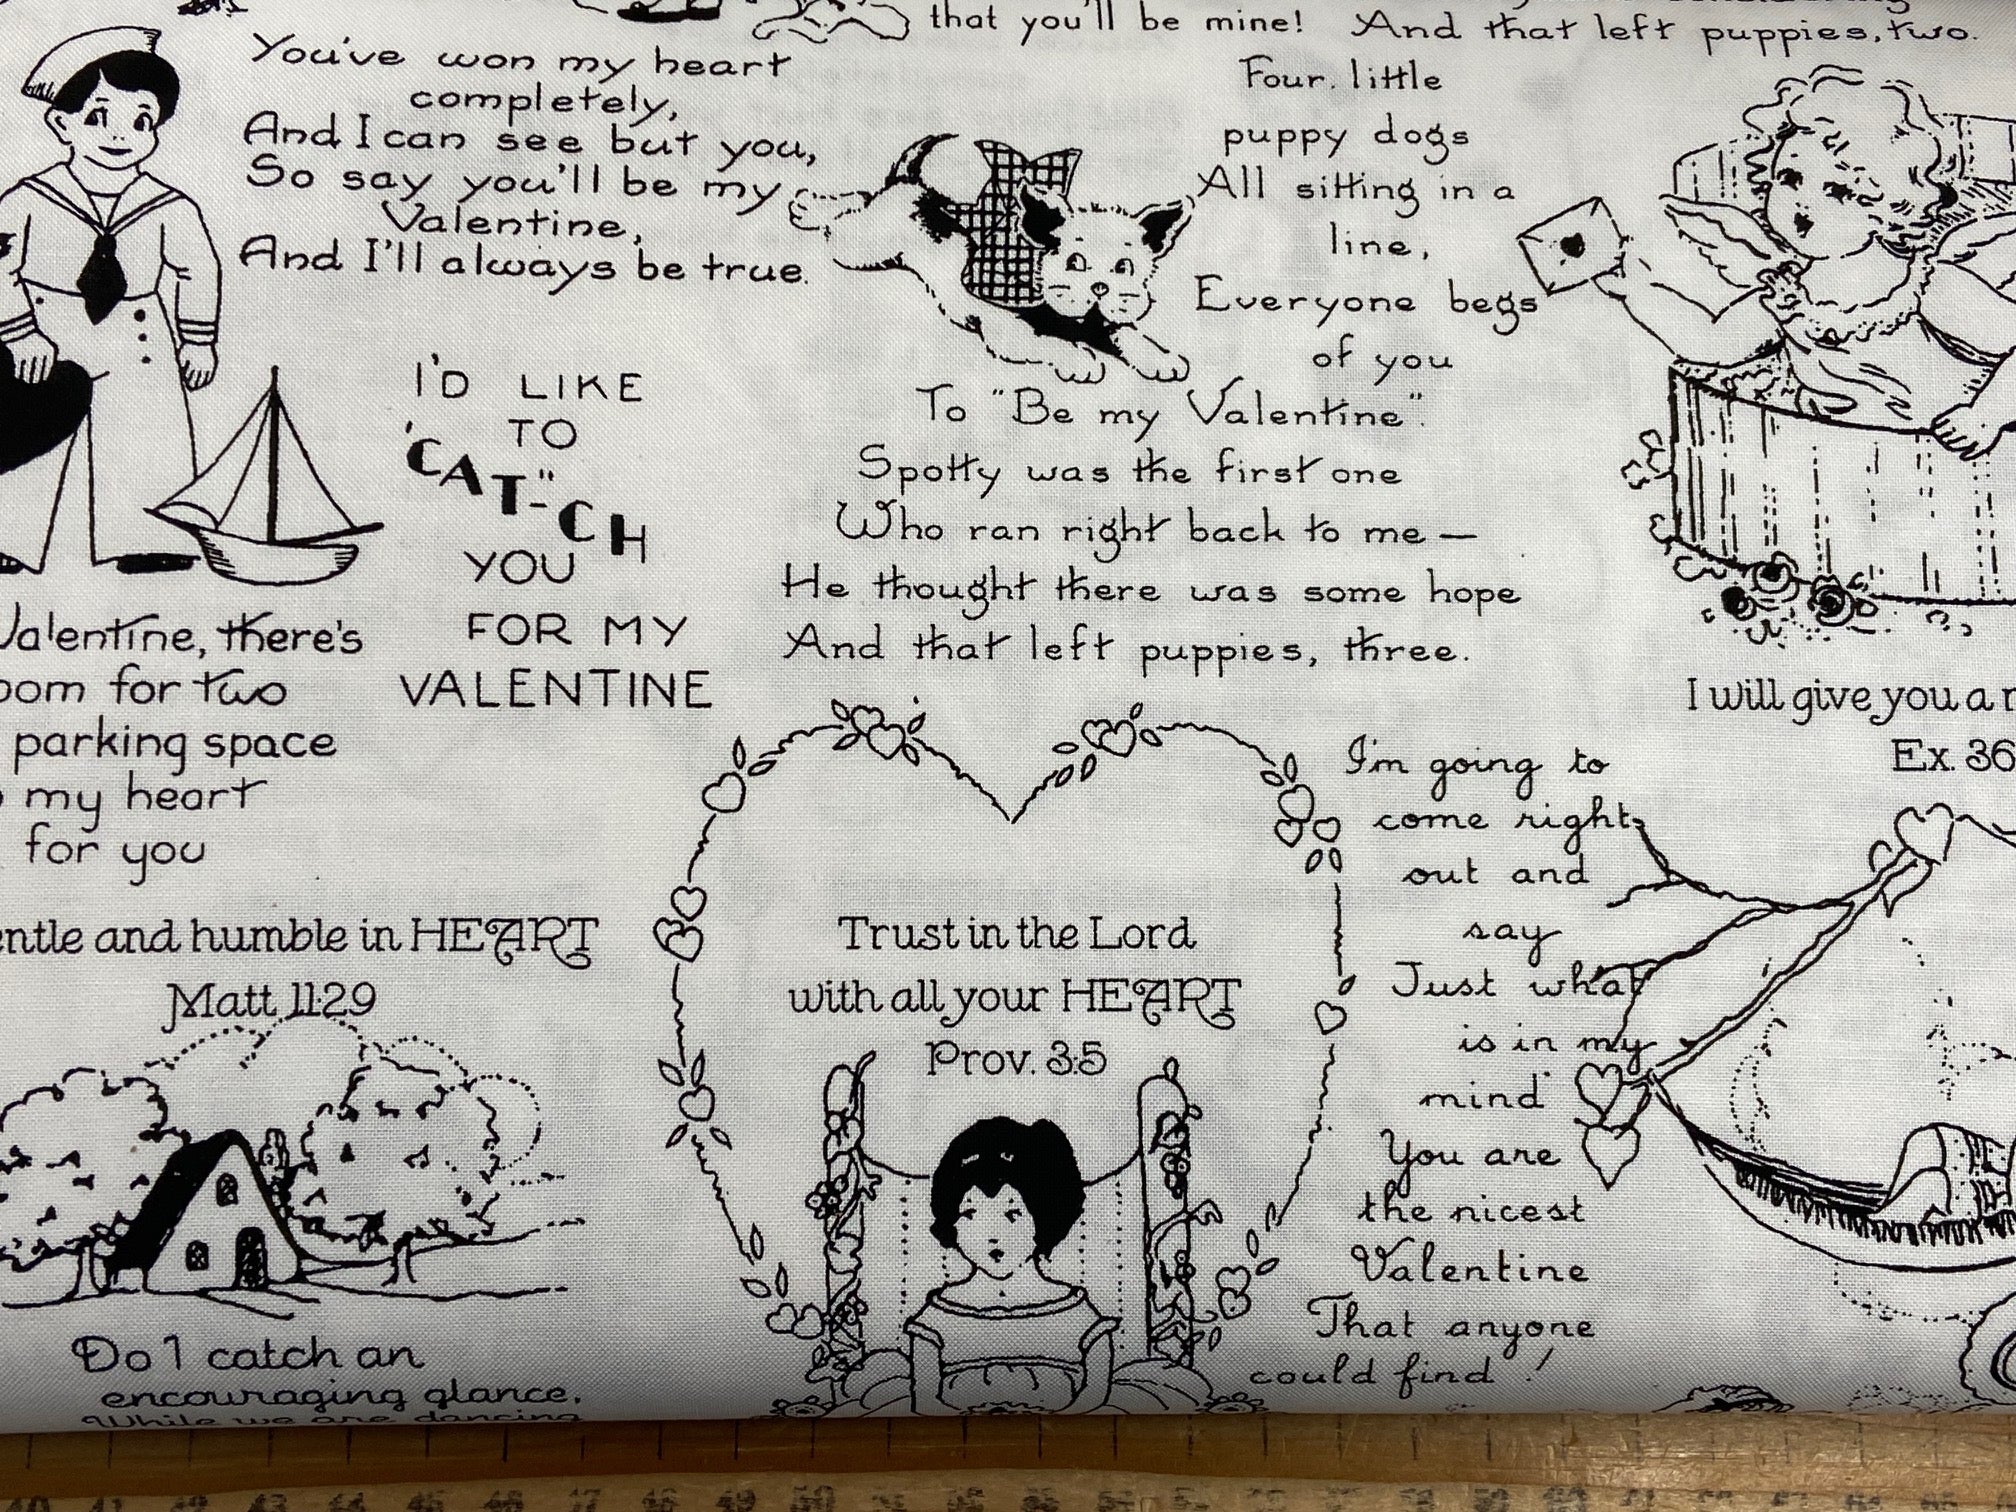 that you'll be mine!
And that left puppies, two.
You've won my heart
completely,
And I can see but you,
So say you'll be my
Valentine,
And I'll always be true.
Four little
puppy dogs
All sitting in a
line,
Everyone begs
of you
To "Be my Valentine".
Spotty was the first one
Who ran right back to me —
He thought there was some hope
And that left puppies, three.
I'D LIKE
TO
'CAT-"CH
YOU
FOR MY
VALENTINE
Valentine, there's
oom for two
parking space
my heart
for you
I will give you a
Ex. 36
entle and humble in HEART
Matt. 11:29
Trust in the Lord
with all your HEART
Prov. 3:5
I'm going to
come right
out and
say
Just what
is in my
mind
You are
the nicest
Valentine
That anyone
could find!
Do I catch an
encouraging glance,
While we are dancing
40 41 42 43 44 45 46 47 48 49 50 51